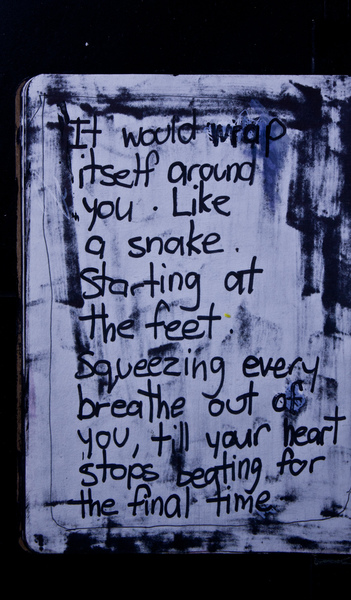 It would wrap
itself around
you. Like
a snake.
Starting at
the feet.
Squeezing every
breathe out of
you, till your heart
stops beating for
the final time